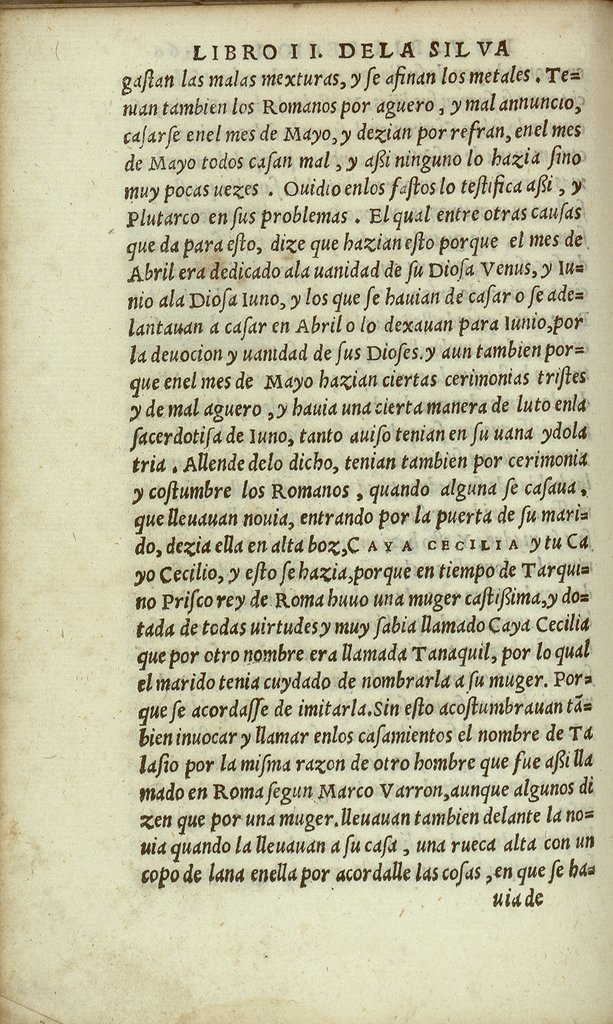 LIBRO II. DELA SILVA
gaſtan las malas mexturas, y ſe afinan los metales. Te=
nian tambien los Romanos por aguero, y mal annuncio,
caſarſe enel mes de Mayo, y dezian por refran, enel mes
de Mayo todos caſan mal, y aßi ninguno lo hazia ſino
muy pocas uezes. Ouidio enlos faſtos lo teſtifica aßi, y
Plutarco en ſus problemas. El qual entre otras cauſas
que da para eſto, dize que hazian eſto porque el mes de
Abril era dedicado ala uanidad de ſu Dioſa Venus, y Iu=
nio ala Dioſa Iuno, y los que ſe hauian de caſar o ſe ade=
lantauan a caſar en Abril o lo dexauan para Iunio, por
la deuocion y uanidad de ſus Dioſes. y aun tambien por=
que enel mes de Mayo hazian ciertas cerimonias triſtes
y de mal aguero, y hauia una cierta manera de luto enla
ſacerdotiſa de Iuno, tanto auiſo tenian en ſu uana ydola
tria. Allende delo dicho, tenian tambien por cerimonia
y coſtumbre los Romanos, quando alguna ſe caſaua,
que lleuauan nouia, entrando por la puerta de ſu mari=
do, dezia ella en alta boz, CAYA CECILIA y tu Ca
yo Cecilio, y eſto ſe hazia, porque en tiempo de Tarqui=
no Priſco rey de Roma huuo una muger caſtißima, y do=
tada de todas uirtudes y muy ſabia llamado Caya Cecilia
que por otro nombre era llamada Tanaquil, por lo qual
el marido tenia cuydado de nombrarla a ſu muger. Por=
que ſe acordaſſe de imitarla. Sin eſto acoſtumbrauan tã=
bien inuocar y llamar enlos caſamientos el nombre de Ta
laſio por la miſma razon de otro hombre que fue aßi lla
mado en Roma ſegun Marco Varron, aunque algunos di
zen que por una muger. lleuauan tambien delante la no=
uia quando la lleuauan a ſu caſa, una rueca alta con un
copo de lana enella por acordalle las coſas, en que ſe ha=
uia de